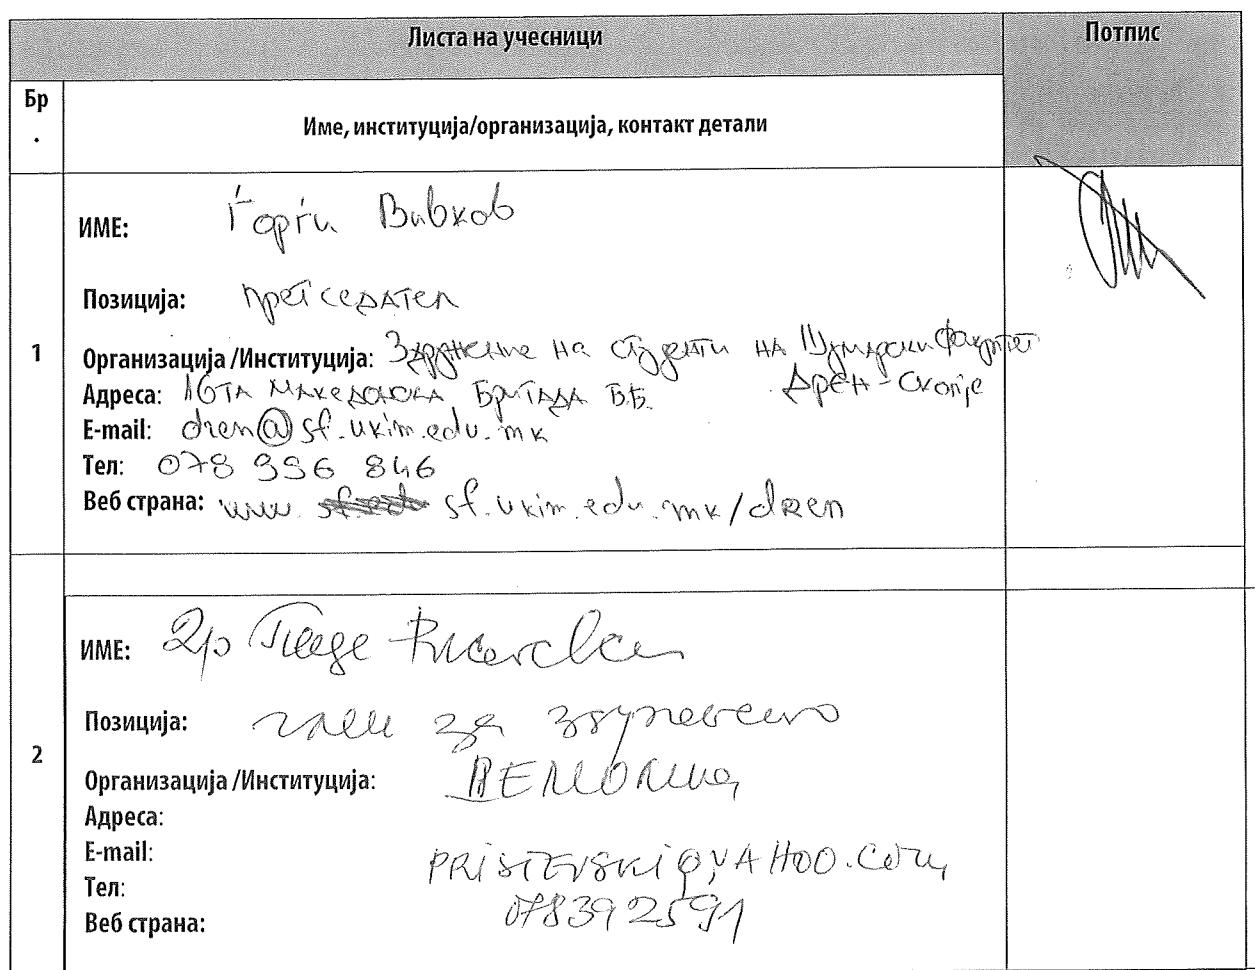 Листа на учесници
Потпис
Бр
.
Име, институција/организација, контакт детали
1
ИМЕ: Ѓорѓи Вивков
Позиција: претседател
Организација /Институција: Здружение на студенти на Шумарски факултет
Дрен - Скопје
Адреса: 16ТА МАКЕДОНСКА БРИГАДА ББ.
E-mail: dren@sf.ukim.edu.mk
Тел: 078 996 846
Веб страна: www. sf.ukim.edu.mk/dren
2
ИМЕ:
Позиција: за
Организација /Институција:
Адреса:
E-mail: PRISTEVSKI@YAHOO.COM
Тел: 078392591
Веб страна: